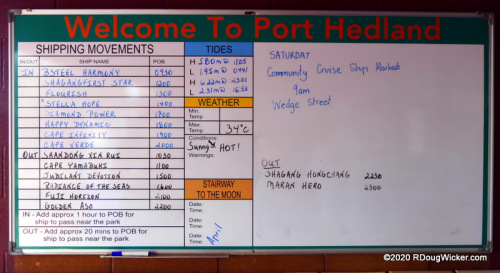 Welcome To Port Hedland
SHIPPING MOVEMENTS
IN/OUT SHIP NAME POB
IN BSTEEL HARMONY 0930
SHAGANGFIRST STAR 1200
FLOURISH 1300
STELLA HOPE 1400
DIAMOND POWER 1700
HAPPY DYNAMIC 1800
CAPE INFINITY 1900
CAPE VERDE 2000
OUT SHANDONG XIN RUI 1030
CAPE YAMABUKI 1100
JUBILANT DEVOTION 1500
RADIANCE OF THE SEAS 1600
FUJI HORIZON 2100
GOLDEN ASO 2200
IN - Add approx 1 hour to POB for
ship to pass near the park
OUT - Add approx 20 mins to POB for
ship to pass near the park
TIDES
H 5.80m @ 1105
L 1.95m @ 0441
H 6.22m @ 2301
L 2.31m @ 1653
WEATHER
Min.
Temp
Max.
Temp 34°C
Conditions:
Sunny & HOT!
Warnings:
STAIRWAY
TO THE MOON
Date:
Time:
Date:
Time:
Date:
Time:
April
SATURDAY
Community Cruise Ship Markets
9am
Wedge Street
OUT
SHAGANG HONGCHANG 2230
MARAN HERO 2300
©2020 RDougWicker.com